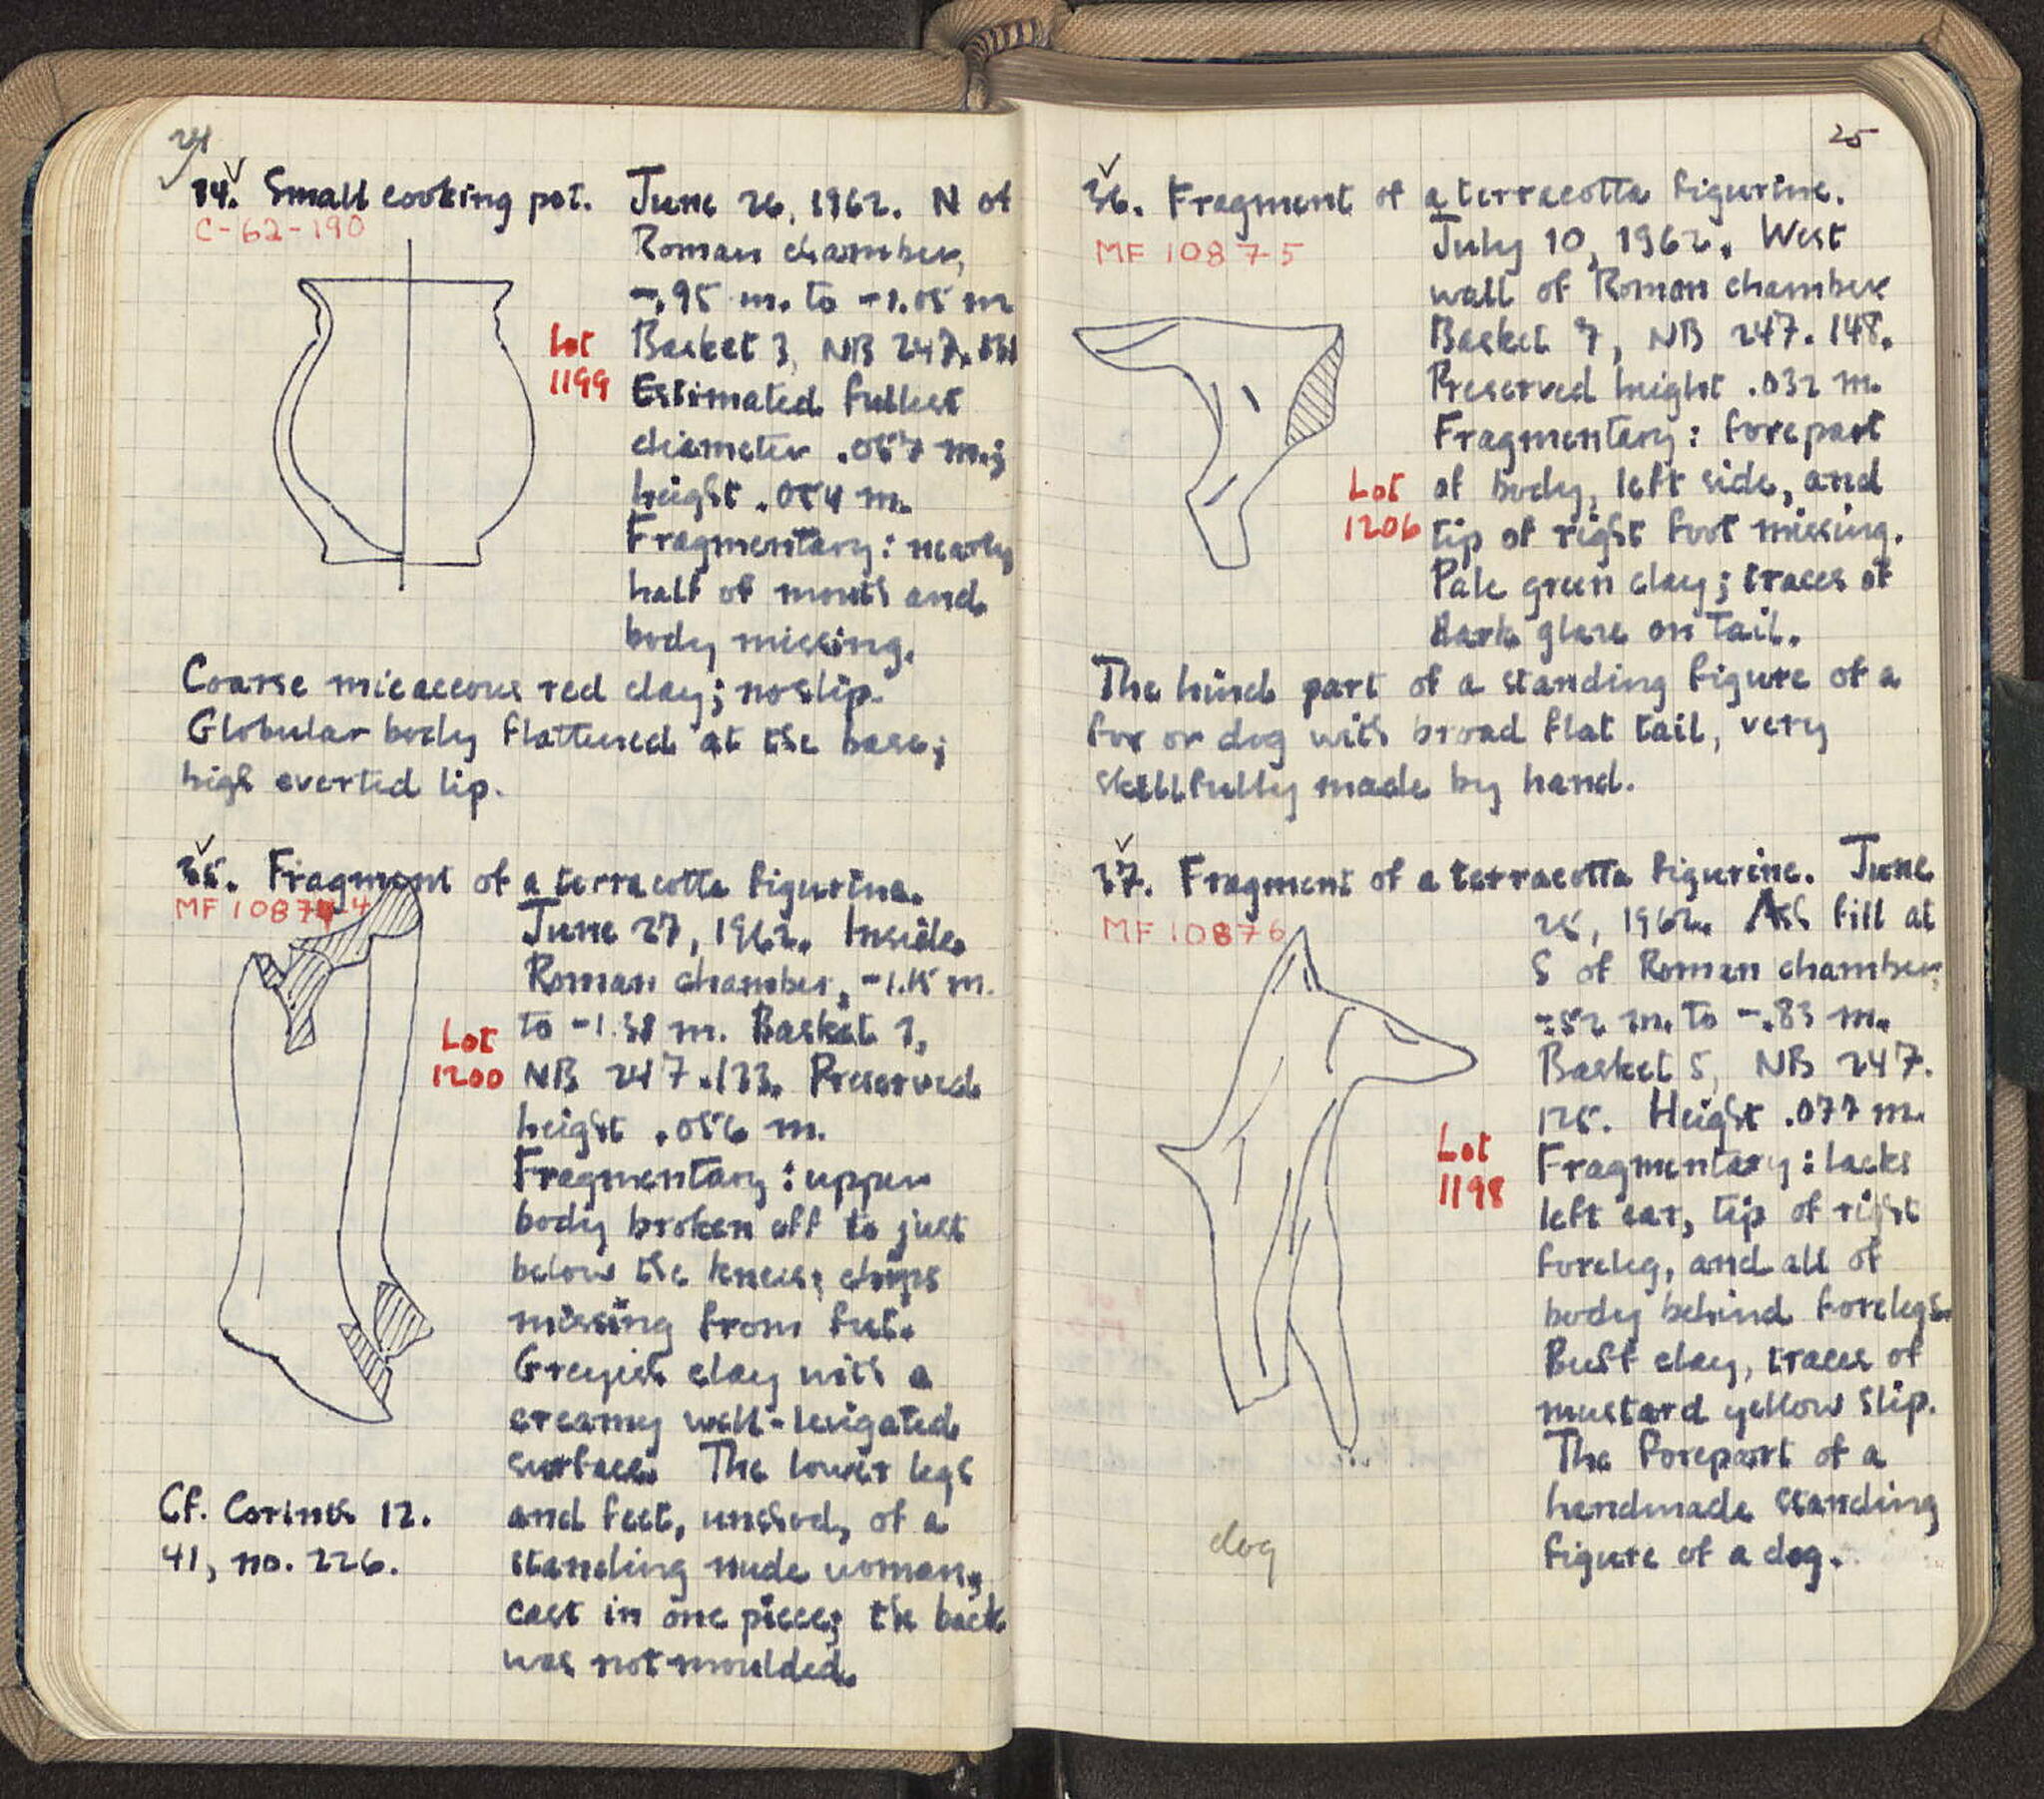 24
34. Small cooking pot. June 26, 1962. N of
C-62-190
Roman chamber,
-.95 m. to -1.05 m
Lot
1199
Basket 3, NB 247.
Estimated fullest
diameter .067 m.;
height .054 m.
Fragmentary: nearly
half of mouth and
body missing.
Coarse micaceous red clay; no slip.
Globular body flattened at the base;
high everted lip.
35. Fragment of a terracotta figurine.
MF 10874
June 27, 1962. Inside
Roman chamber, -1.15 m.
to -1.38 m. Basket 3,
Lot
1200
NB 247.133. Preserved
height .056 m.
Fragmentary: upper
body broken off to just
below the knees; chips
missing from feet.
Greyish clay with a
creamy well-levigated
surface. The lower legs
and feet, unshod, of a
standing nude woman,
cast in one piece; the back
was not moulded.
Cf. Corinth 12.
41, no. 226.
25
36. Fragment of a terracotta figurine.
MF 10875
July 10, 1962. West
wall of Roman chamber
Basket 7, NB 247.148.
Preserved height .032 m.
Fragmentary: forepart
Lot
1206
of body, left side, and
tip of right foot missing.
Pale green clay; traces of
dark glaze on tail.
The hind part of a standing figure of a
fox or dog with broad flat tail, very
skillfully made by hand.
37. Fragment of a terracotta figurine. June
MF 10876
25, 1962. Ash fill at
S of Roman chamber,
-.52 m. to -.83 m.
Basket 5, NB 247.
125. Height .077 m.
Lot
1198
Fragmentary: lacks
left ear, tip of right
foreleg, and all of
body behind forelegs.
Buff clay, traces of
mustard yellow slip.
The forepart of a
handmade standing
figure of a dog.
dog